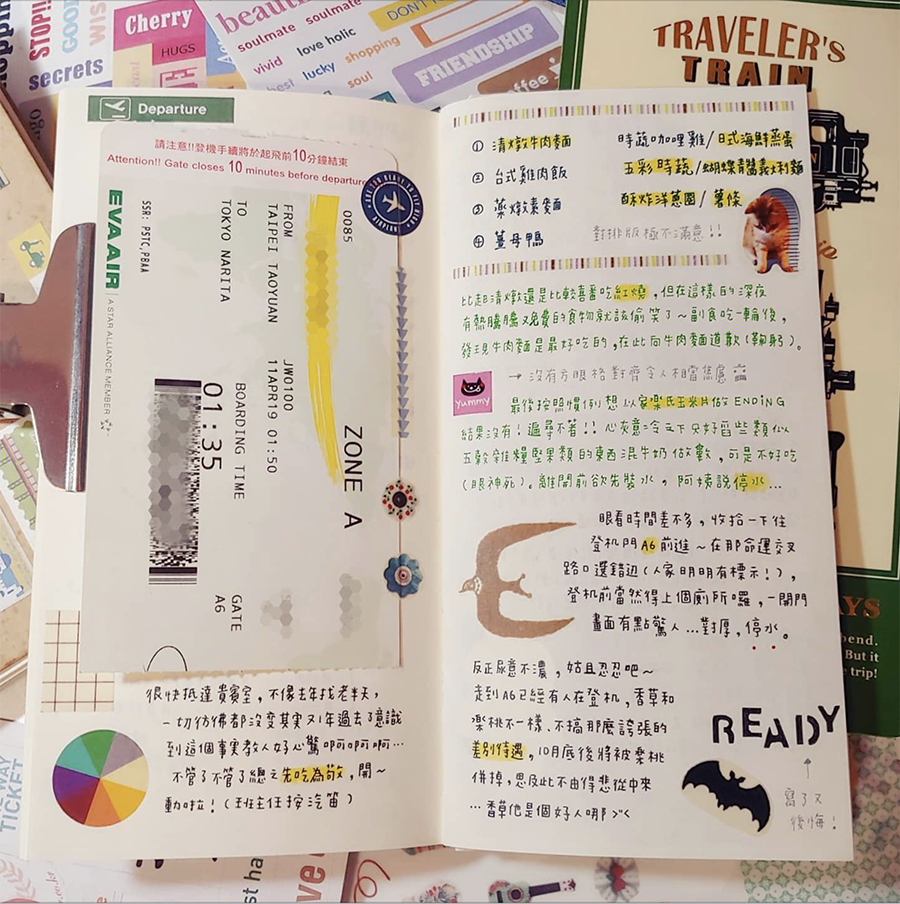 Cherry
HUGS
STOP!!
secrets
soulmate soulmate
vivid
love holic
lucky
shopping
soul
DON'T
FRIENDSHIP
coffee
TRAVELER's
TRAIN
Departure
請注意!!登機手續將於起飛前10分鐘結束
Attention!! Gate closes 10 minutes before departure
EVA AIR
A STAR ALLIANCE MEMBER
SSR: PSTC,PBAA
TO
TOKYO NARITA
FROM
TAIPEI TAOYUAN
0085
JW0100
11APR19 01:50
BOARDING TIME
01:35
ZONE A
GATE
A6
很快抵達貴賓室,不像去年找老半天,
一切彷彿都沒變其實又1年過去了意識
到這個事實教人好心驚啊啊啊啊…
不管了不管了總之先吃為敬,開~
動啦!(班主任按汽笛)
① 清燉牛肉麵
② 台式雞肉飯
③ 藥燉素麵
④ 薑母鴨
時蔬咖哩雞/日式海鮮蒸蛋
五彩時蔬/蝴蝶青醬義大利麵
酥炸洋蔥圈/薯條
對排版極不滿意!!
比起清燉還是比較喜番吃紅燒,但在這樣的深夜
有熱騰騰又免費的食物就該偷笑了~副食吃一輪後,
發現牛肉麵是最好吃的,在此向牛肉麵道歉(鞠躬)。
→沒有方眼格對齊令人相當焦慮
yummy
最後按照慣例想以家樂氏玉米片做ENDING
結果沒有!遍尋不著!!心灰意冷之下只好舀些類似
五穀雜糧堅果類的東西混牛奶做數,可是不好吃
(眼神死)。離開前欲先裝水,阿姨說停水…
眼看時間差不多,收拾一下往
登机門A6前進~在那命運交叉
路口選錯邊(人家明明有標示!),
登机前當然得上個廁所囉,一開門
畫面有點驚人…對厚,停水。
反正尿意不濃,姑且忍忍吧~
走到A6已經有人在登机,香草和
樂桃不一樣,不搞那麼誇張的
差別待遇,10月底後將被樂桃
併掉,思及此不由得悲從中來
…香草他是個好人哪
READY
寫了又
後悔!
TICKET
But it
trip!